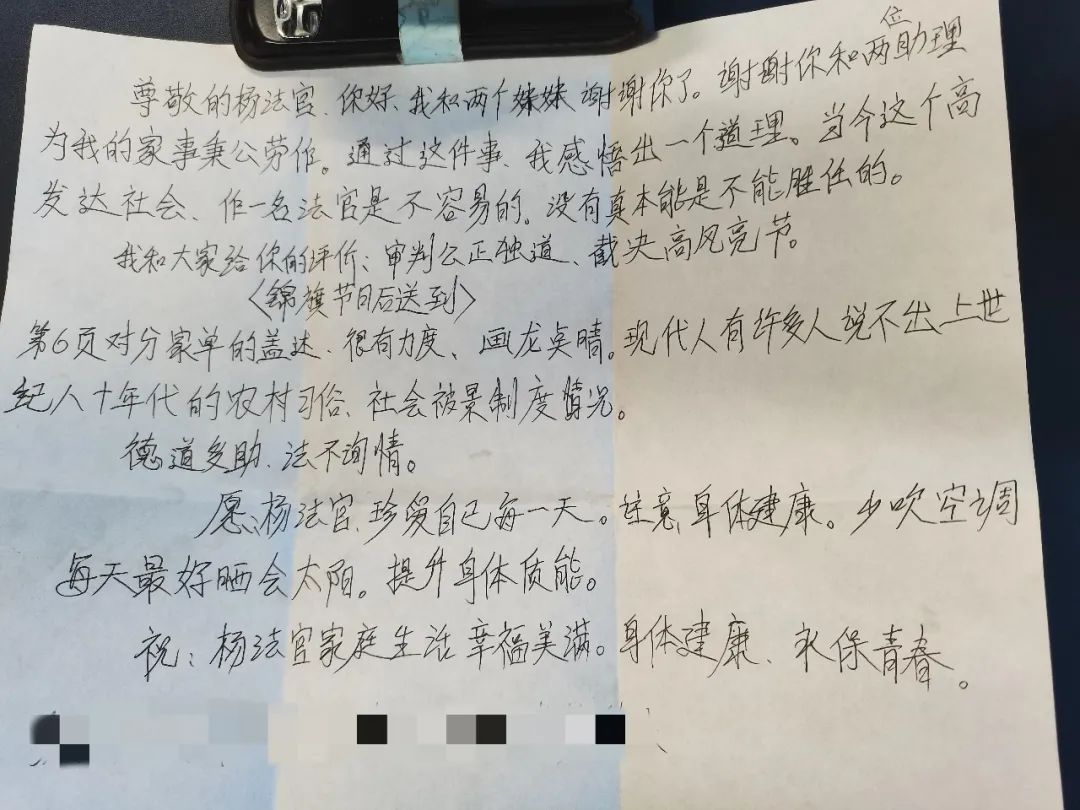 尊敬的杨法官、你好、我和两个妹妹、谢谢你了。谢谢你和两位助理
为我的家事秉公劳作。通过这件事、我感悟出一个道理。当今这个高
发达社会、作一名法官是不容易的。没有真本能是不能胜任的。
我和大家给你的评价：审判公正独道、裁决高风亮节。
〈锦旗节日后送到〉
第6页对分家单的盖达、很有力度、画龙点晴。现代人有许多人说不出上世
纪八十年代的农村习俗、社会被景制度情况。
德道多助、法不询情。
愿：杨法官、珍爱自己每一天。注意身体建康。少吹空调
每天最好晒会太阳。提升身体质能。
祝：杨法官家庭生活幸福美满。身体建康、永保青春。